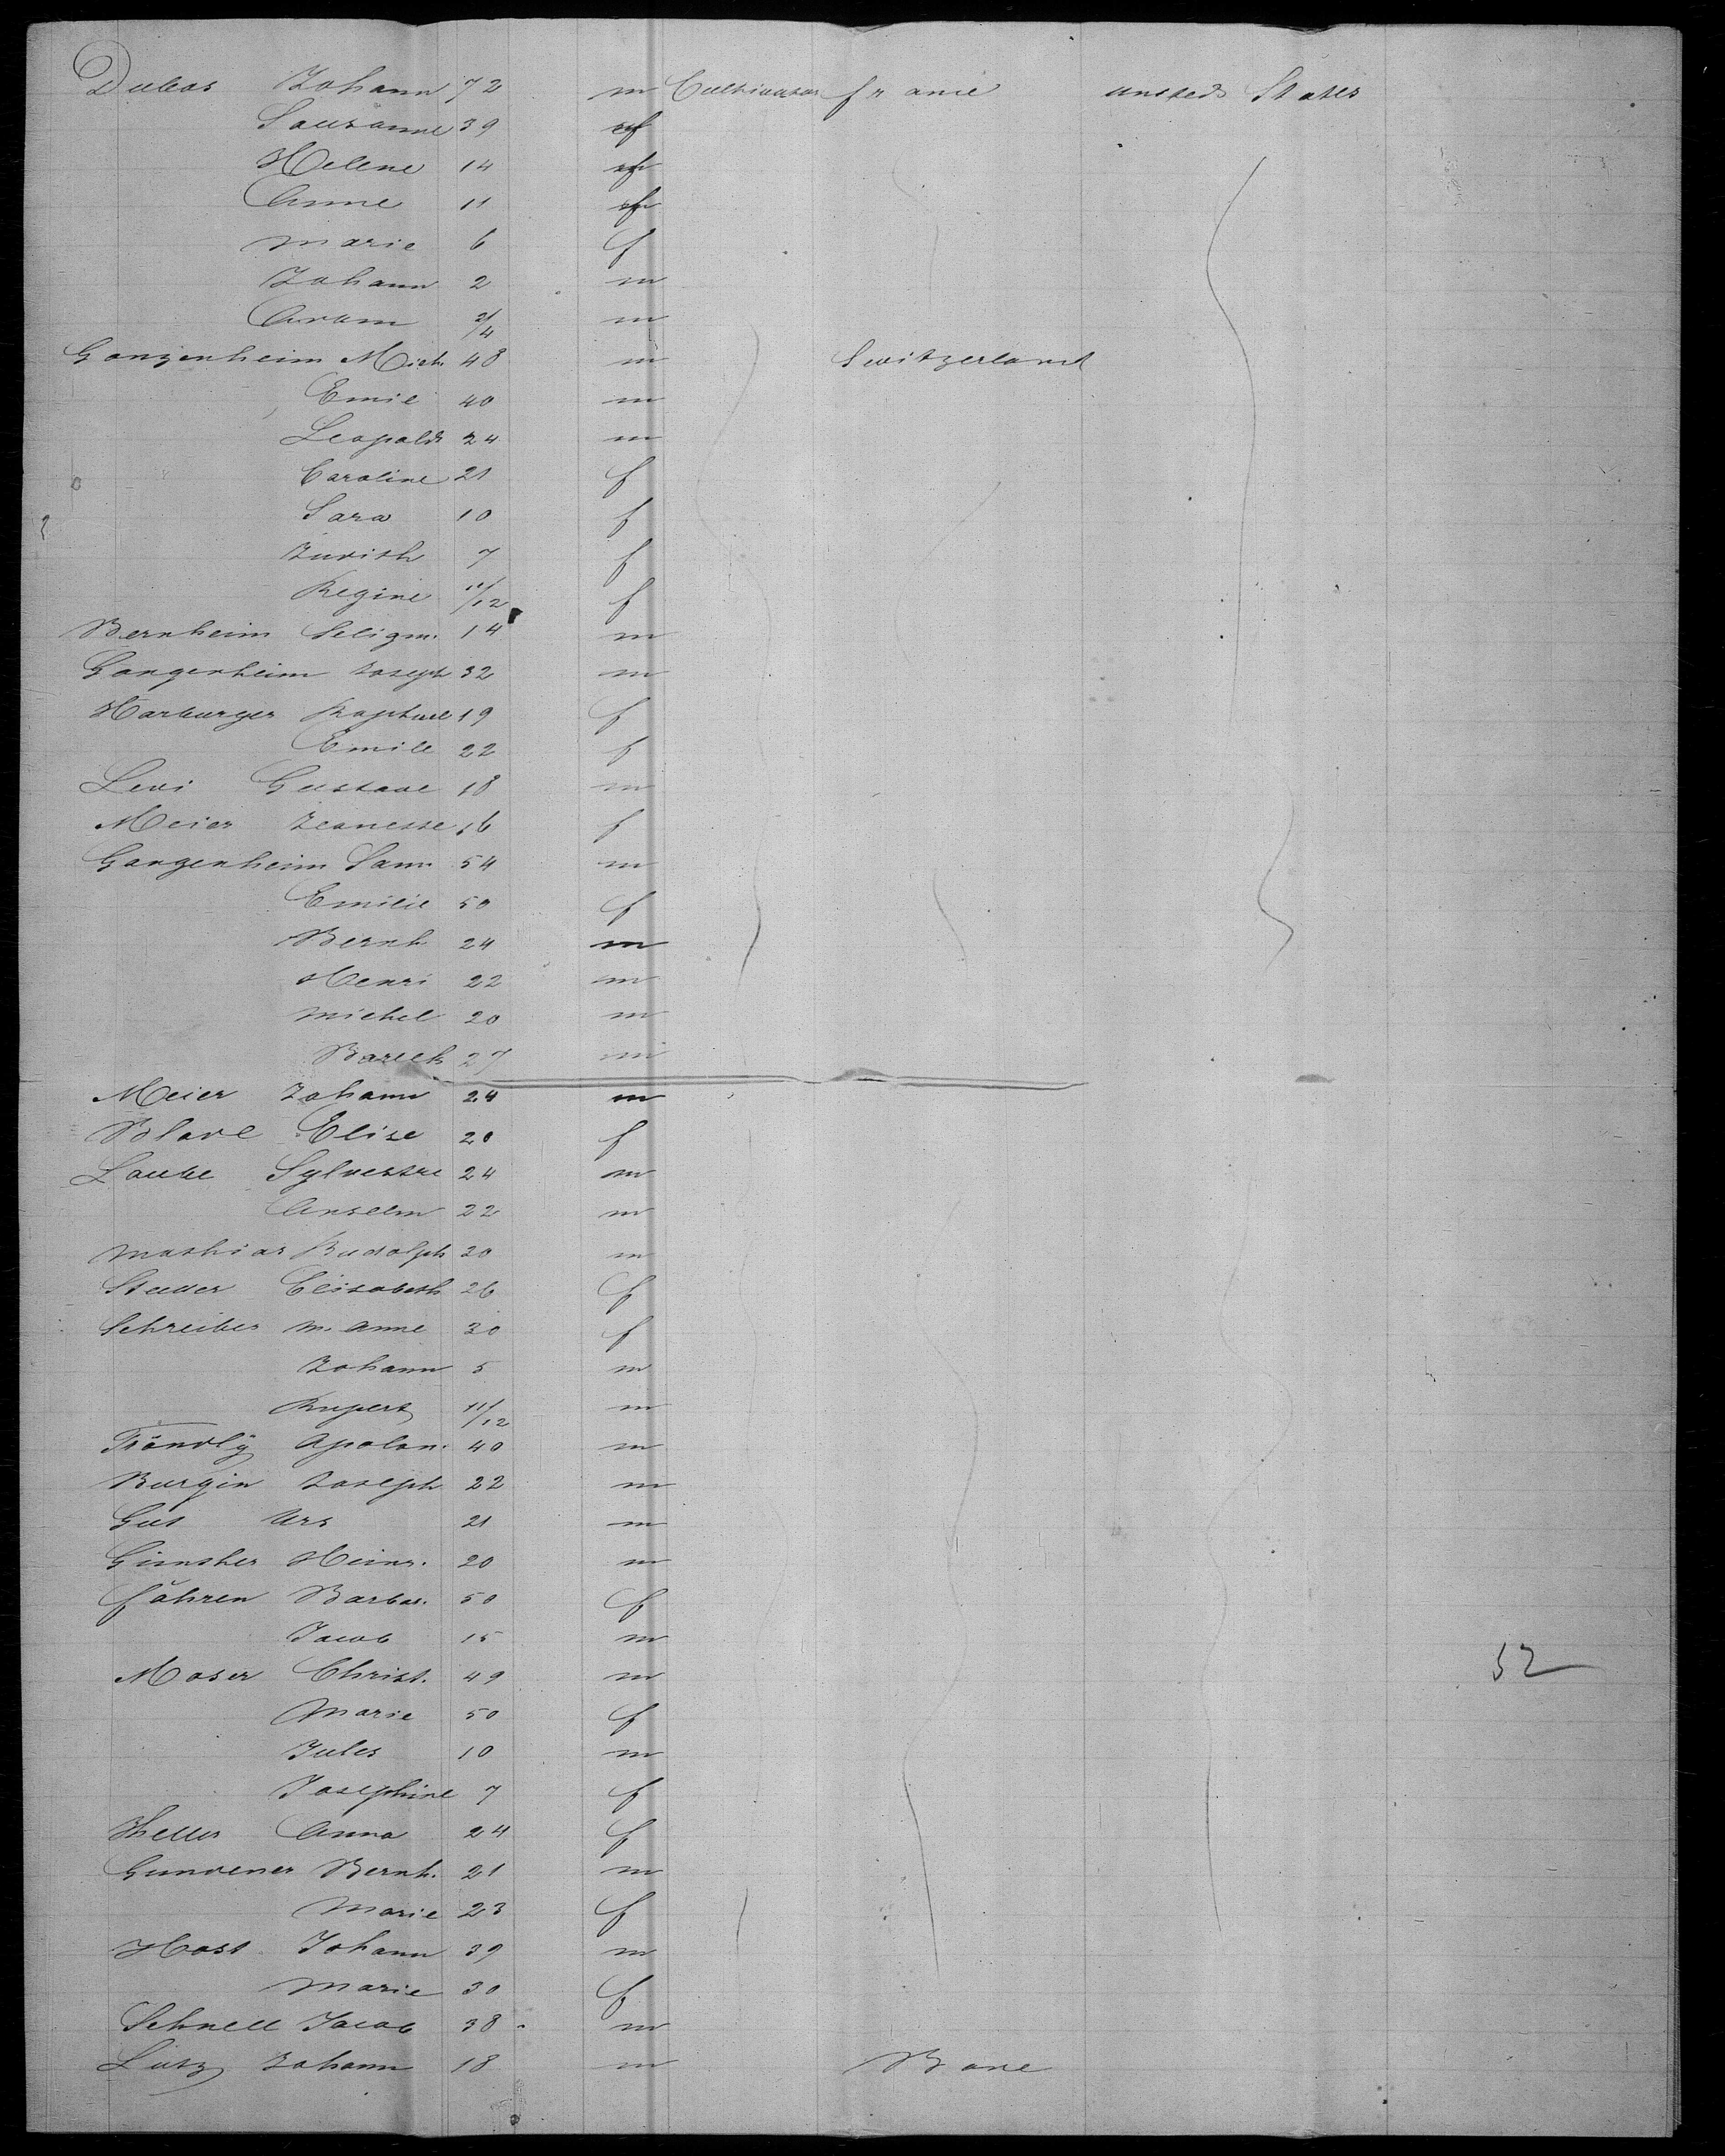 Dubas Johann 72 m Cultivator france united States
Sousanne 39 f
Helene 14 f
Anne 11 f
Marie 6 f
Johann 2 m
Avram 2/4 m
Gongenheim Mich 48 m Switzerland
Emil 40 m
Leopold 24 m
Caroline 21 f
Sara 10 f
Judith 7 f
Regine 11/12 f
Bernheim Seligm. 14 m
Gangenheim Joseph 32 m
Harburger Raphael 19 f
Emile 22 f
Levi Gustave 18 m
Meier Jeanesse 16 f
Gangenheim Sam. 54 m
Emilie 50 f
Bernh 24 m
Henri 22 m
Michel 20 m
Baruch 27 m
Meier Johann 24 m
Elise 20 f
Laube Sylvestre 24 m
Anselm 22 m
Mathias Rudolph 20 m
Studer Elisabeth 26 f
Schreiber M. Anne 30 f
Johann 5 m
Rupert 11/12 m
Apolon. 40 m
Burgin Joseph 22 m
Gut Urs 21 m
Heinr. 20 m
fähren Barbar. 50 f
Jacob 15 m
Moser Christ. 49 m 52
Marie 50 f
Jules 10 m
Josephine 7 f
Anna 24 f
Gundener Bernh. 21 m
Marie 23 f
Host Johann 39 m
Marie 30 f
Schnell Jacob 38 m
Lutz Johann 18 m Bade